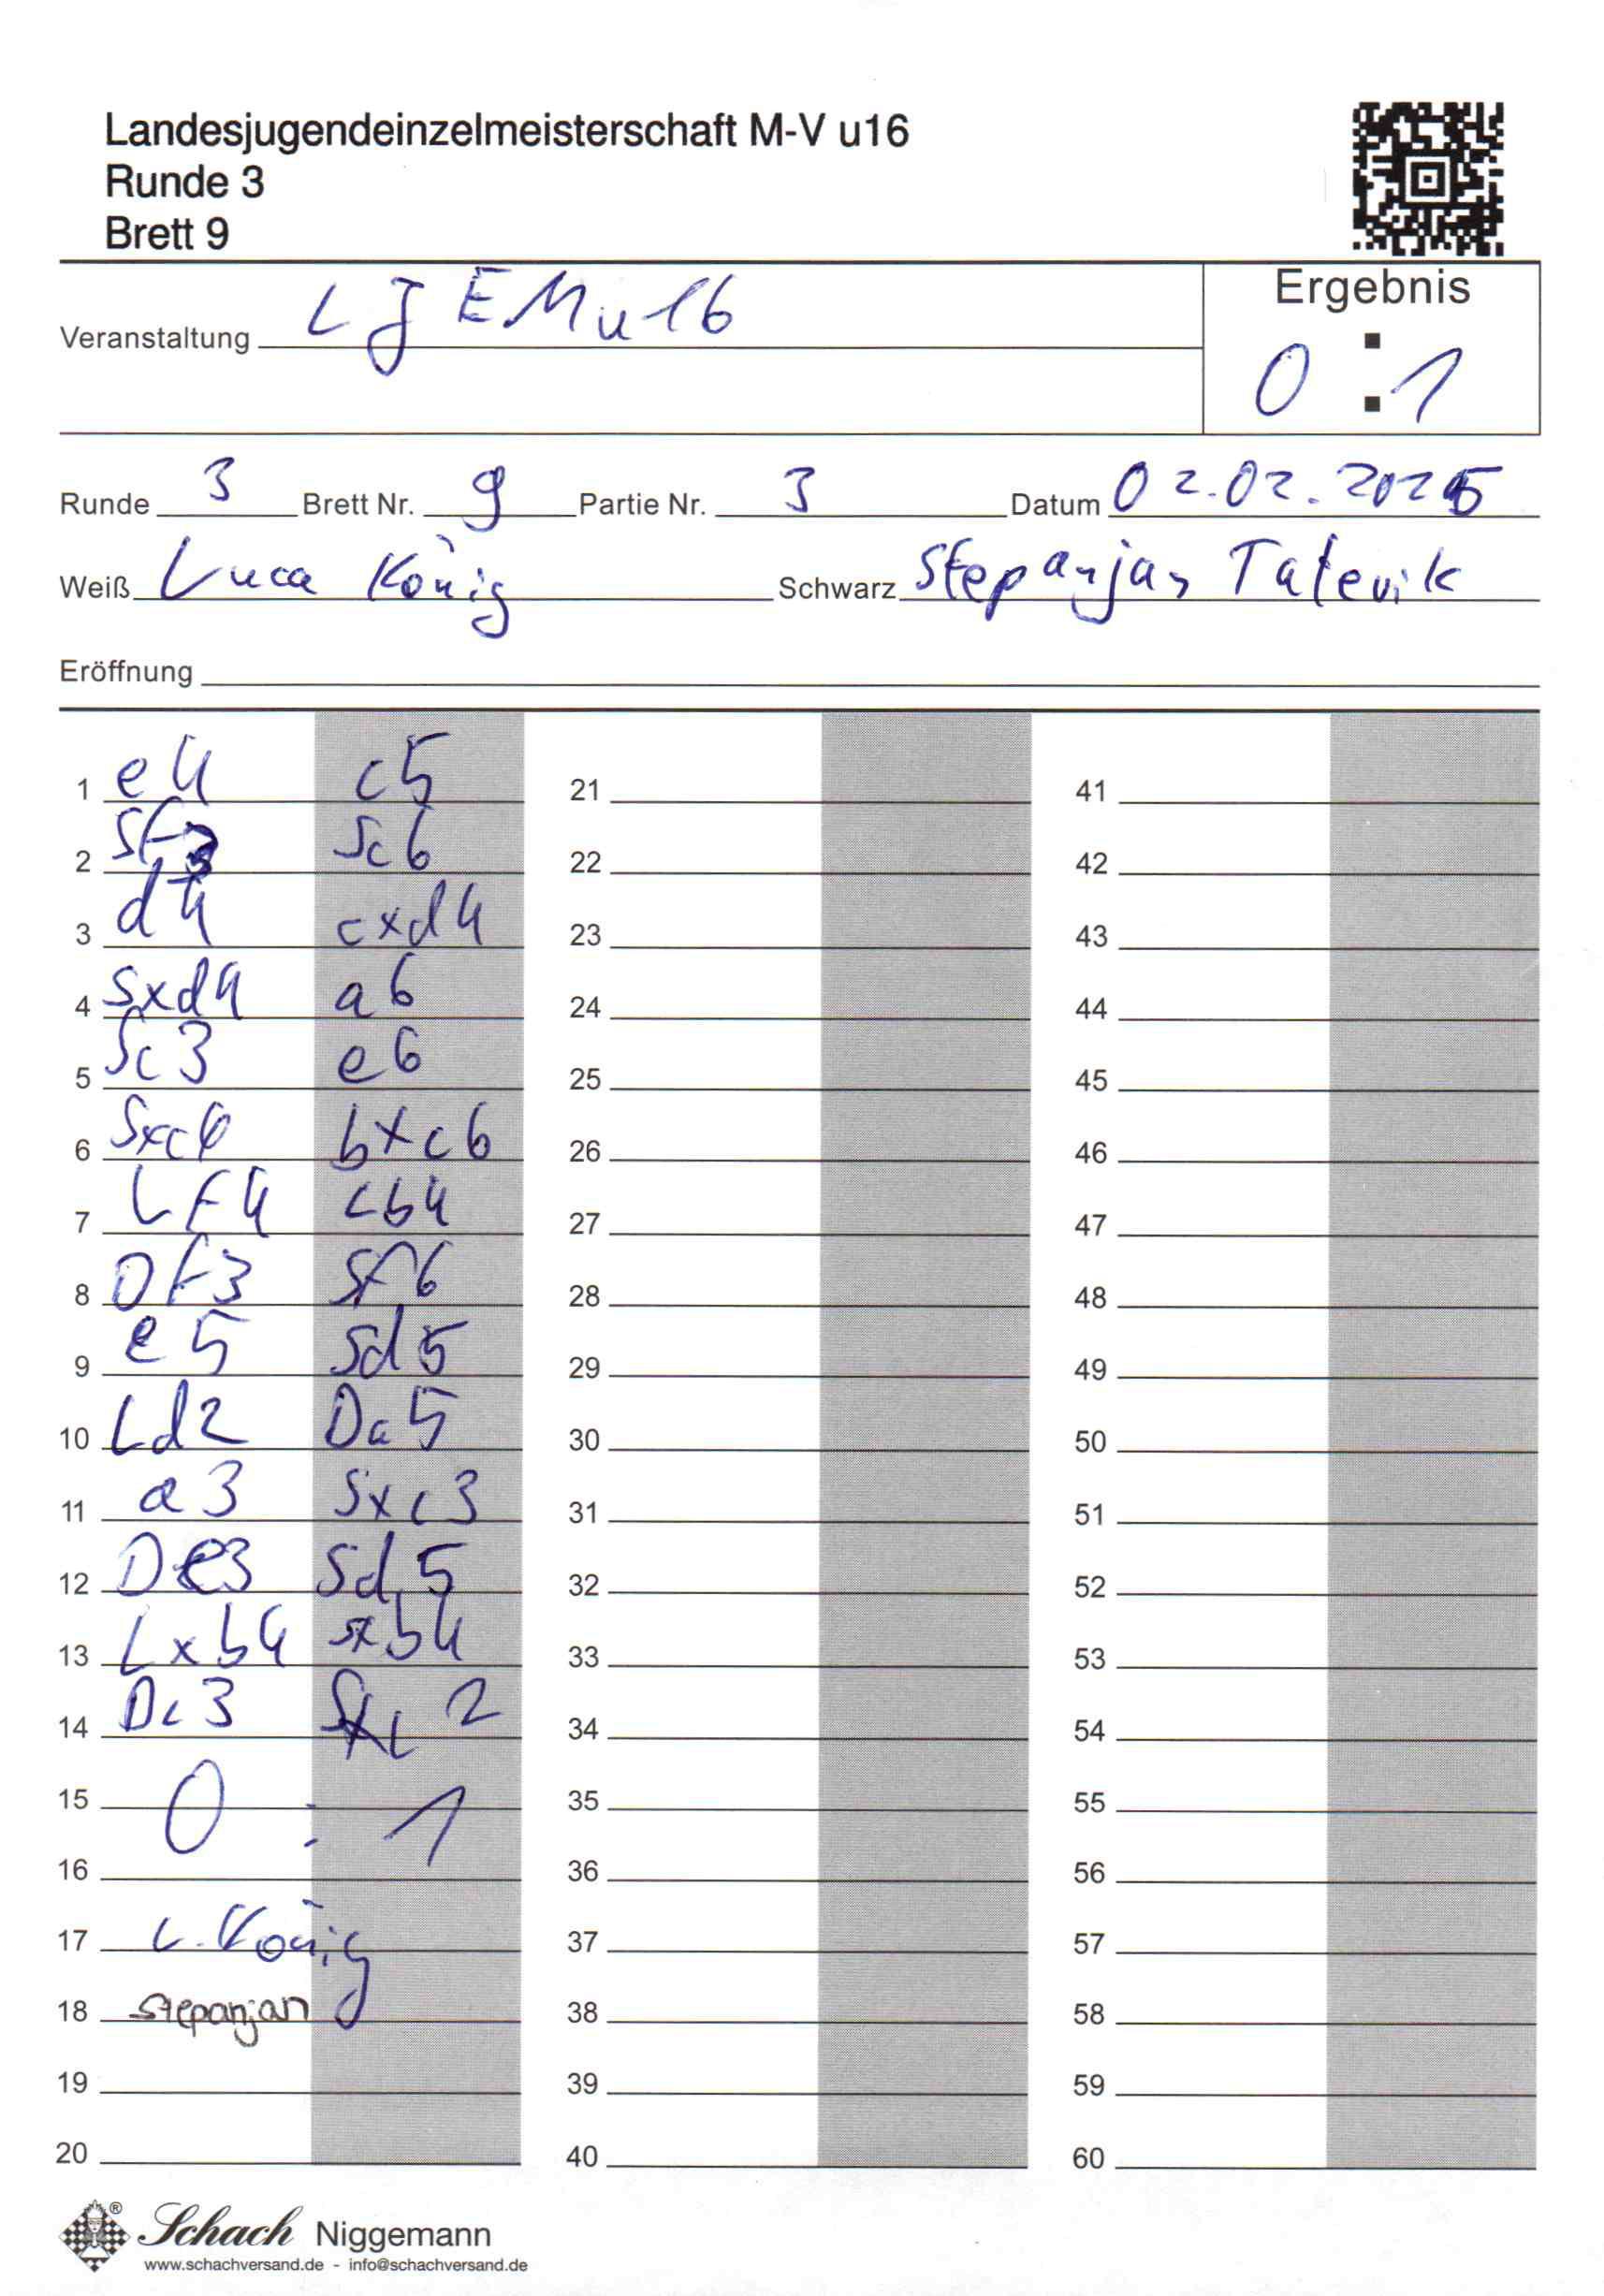 Landesjugendeinzelmeisterschaft M-V u16
Runde 3
Brett 9
Ergebnis
Veranstaltung LJEM u16
0 : 1
Runde 3 Brett Nr. 9 Partie Nr. 3 Datum 02.02.2025
Weiß Luca König Schwarz Stepanjan Tatevik
Eröffnung
1 e4 c5 21 41
2 Sf3 Sc6 22 42
3 d4 cxd4 23 43
4 Sxd4 a6 24 44
5 Sc3 e6 25 45
6 Sxc6 bxc6 26 46
7 Lf4 Lb4 27 47
8 Df3 Sf6 28 48
9 e5 Sd5 29 49
10 Ld2 Da5 30 50
11 a3 Sxc3 31 51
12 De3 Sd5 32 52
13 Lxb4 Sxb4 33 53
14 Dc3 Sxc2 34 54
15 0 : 1 35 55
16 36 56
17 L. König 37 57
18 Stepanjan 38 58
19 39 59
20 40 60
Schach Niggemann
www.schachversand.de - info@schachversand.de